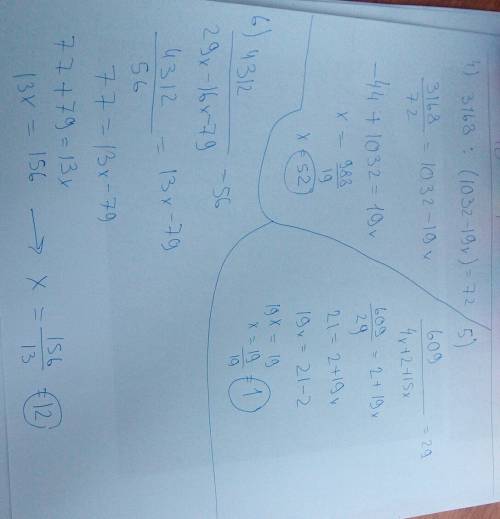 4) 3168 : (1032-19x) = 72
3168/72 = 1032-19x
-44 + 1032 = 19x
x = 988/19
x = 52
5)
609/(4x+2+15x) = 29
609/29 = 2+19x
21 = 2+19x
19x = 21-2
19x = 19
x = 19/19 = 1
6) 4312/(29x-16x-79) = 56
4312/56 = 13x-79
77 = 13x-79
77+79 = 13x
13x = 156 → x = 156/13 = 12